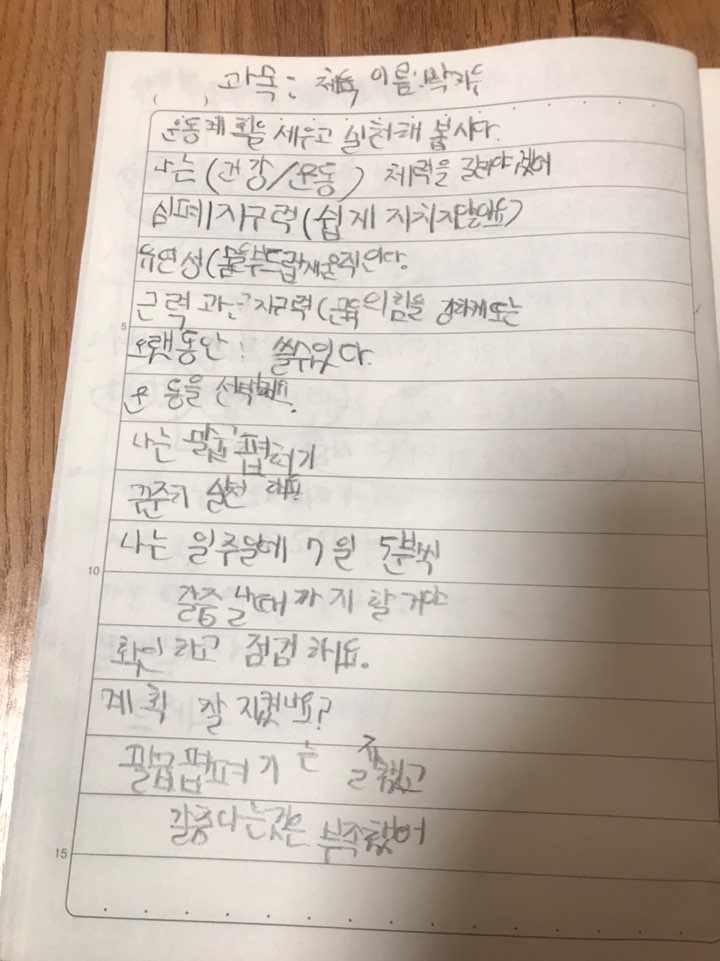 과목: 체육 이름: 박지
( )
운동계획을 세우고 실천해 봅시다.
나는 (건강/운동) 체력을 길러야겠어
심폐지구력(쉽게 지치지않아요)
유연성(몸을부드럽게움직인다.
근력 과근지구력(근육의힘을 강하게또는
오랫동안 쓸수있다.
운동을 선택해요.
나는 팔굽펍펴기
꾸준히 실천 해요!
나는 일주일에 7일 5분씩
갈증 날때 까지 할거다
확인하고 점검 하이요.
계획 잘 지켰나요?
팔굽펍펴기는 잘했고
갈증나는것은 부족했어
5
10
15